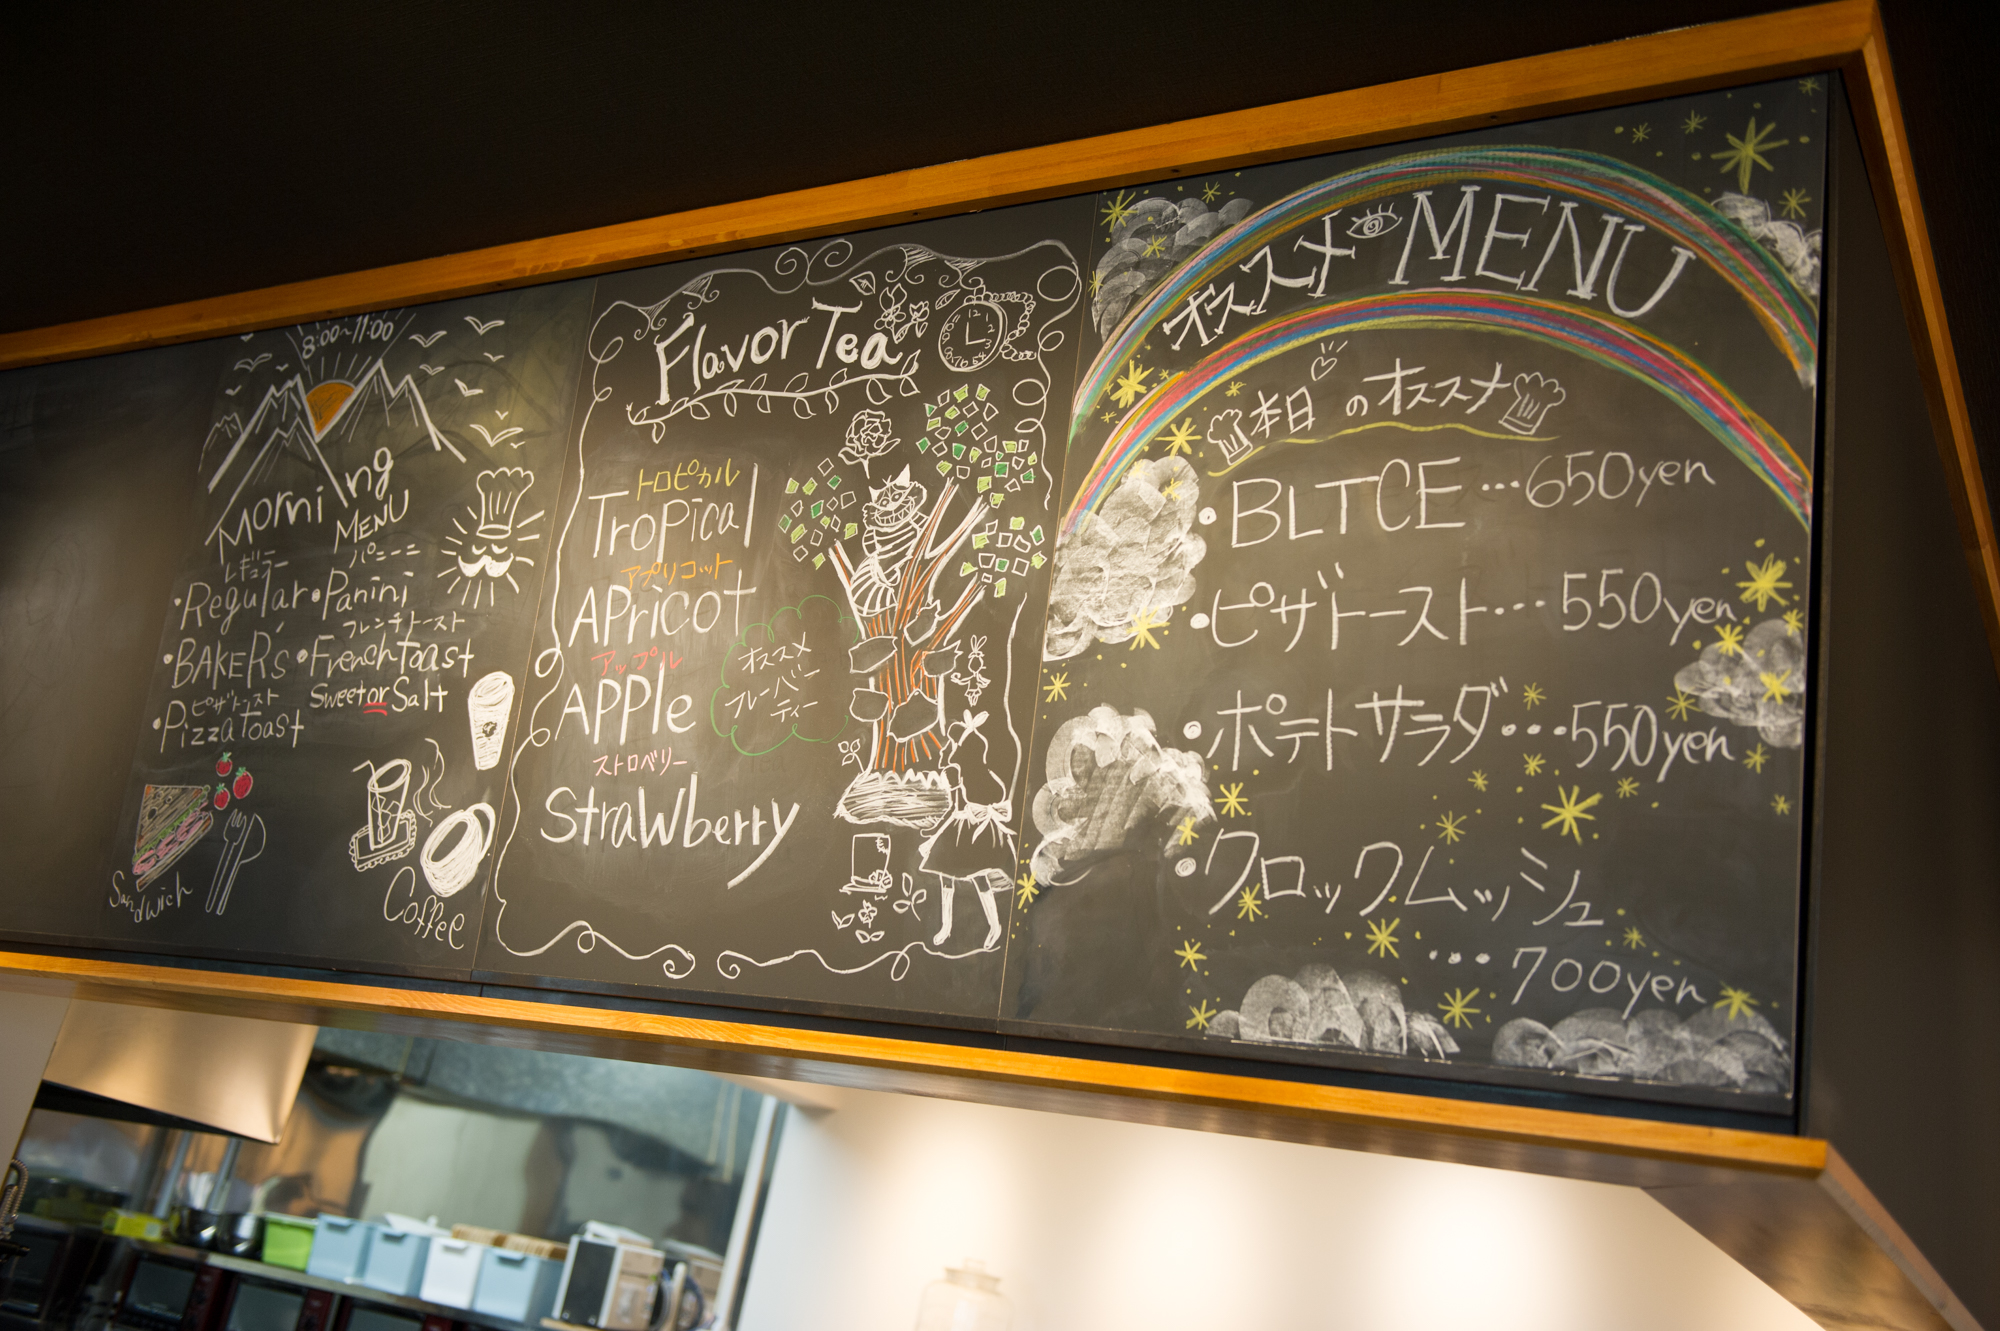 8:00~11:00
Morning
MENU
レギュラー
・Regular
BAKER'S
・BAKER'S
ピザトースト
・Pizza toast
パニーニ
・Panini
フレンチトースト
・French Toast
Sweet or Salt
Sandwich
Coffee
Flavor Tea
トロピカル
Tropical
アプリコット
APricoT
アップル
APPle
ストロベリー
Strawberry
オススメ
フレーバー
ティー
オススメ MENU
本日のオススメ
・BLTCE…650yen
・ピザトースト…550yen
・ポテトサラダ…550yen
・クロックムッシュ
…700yen